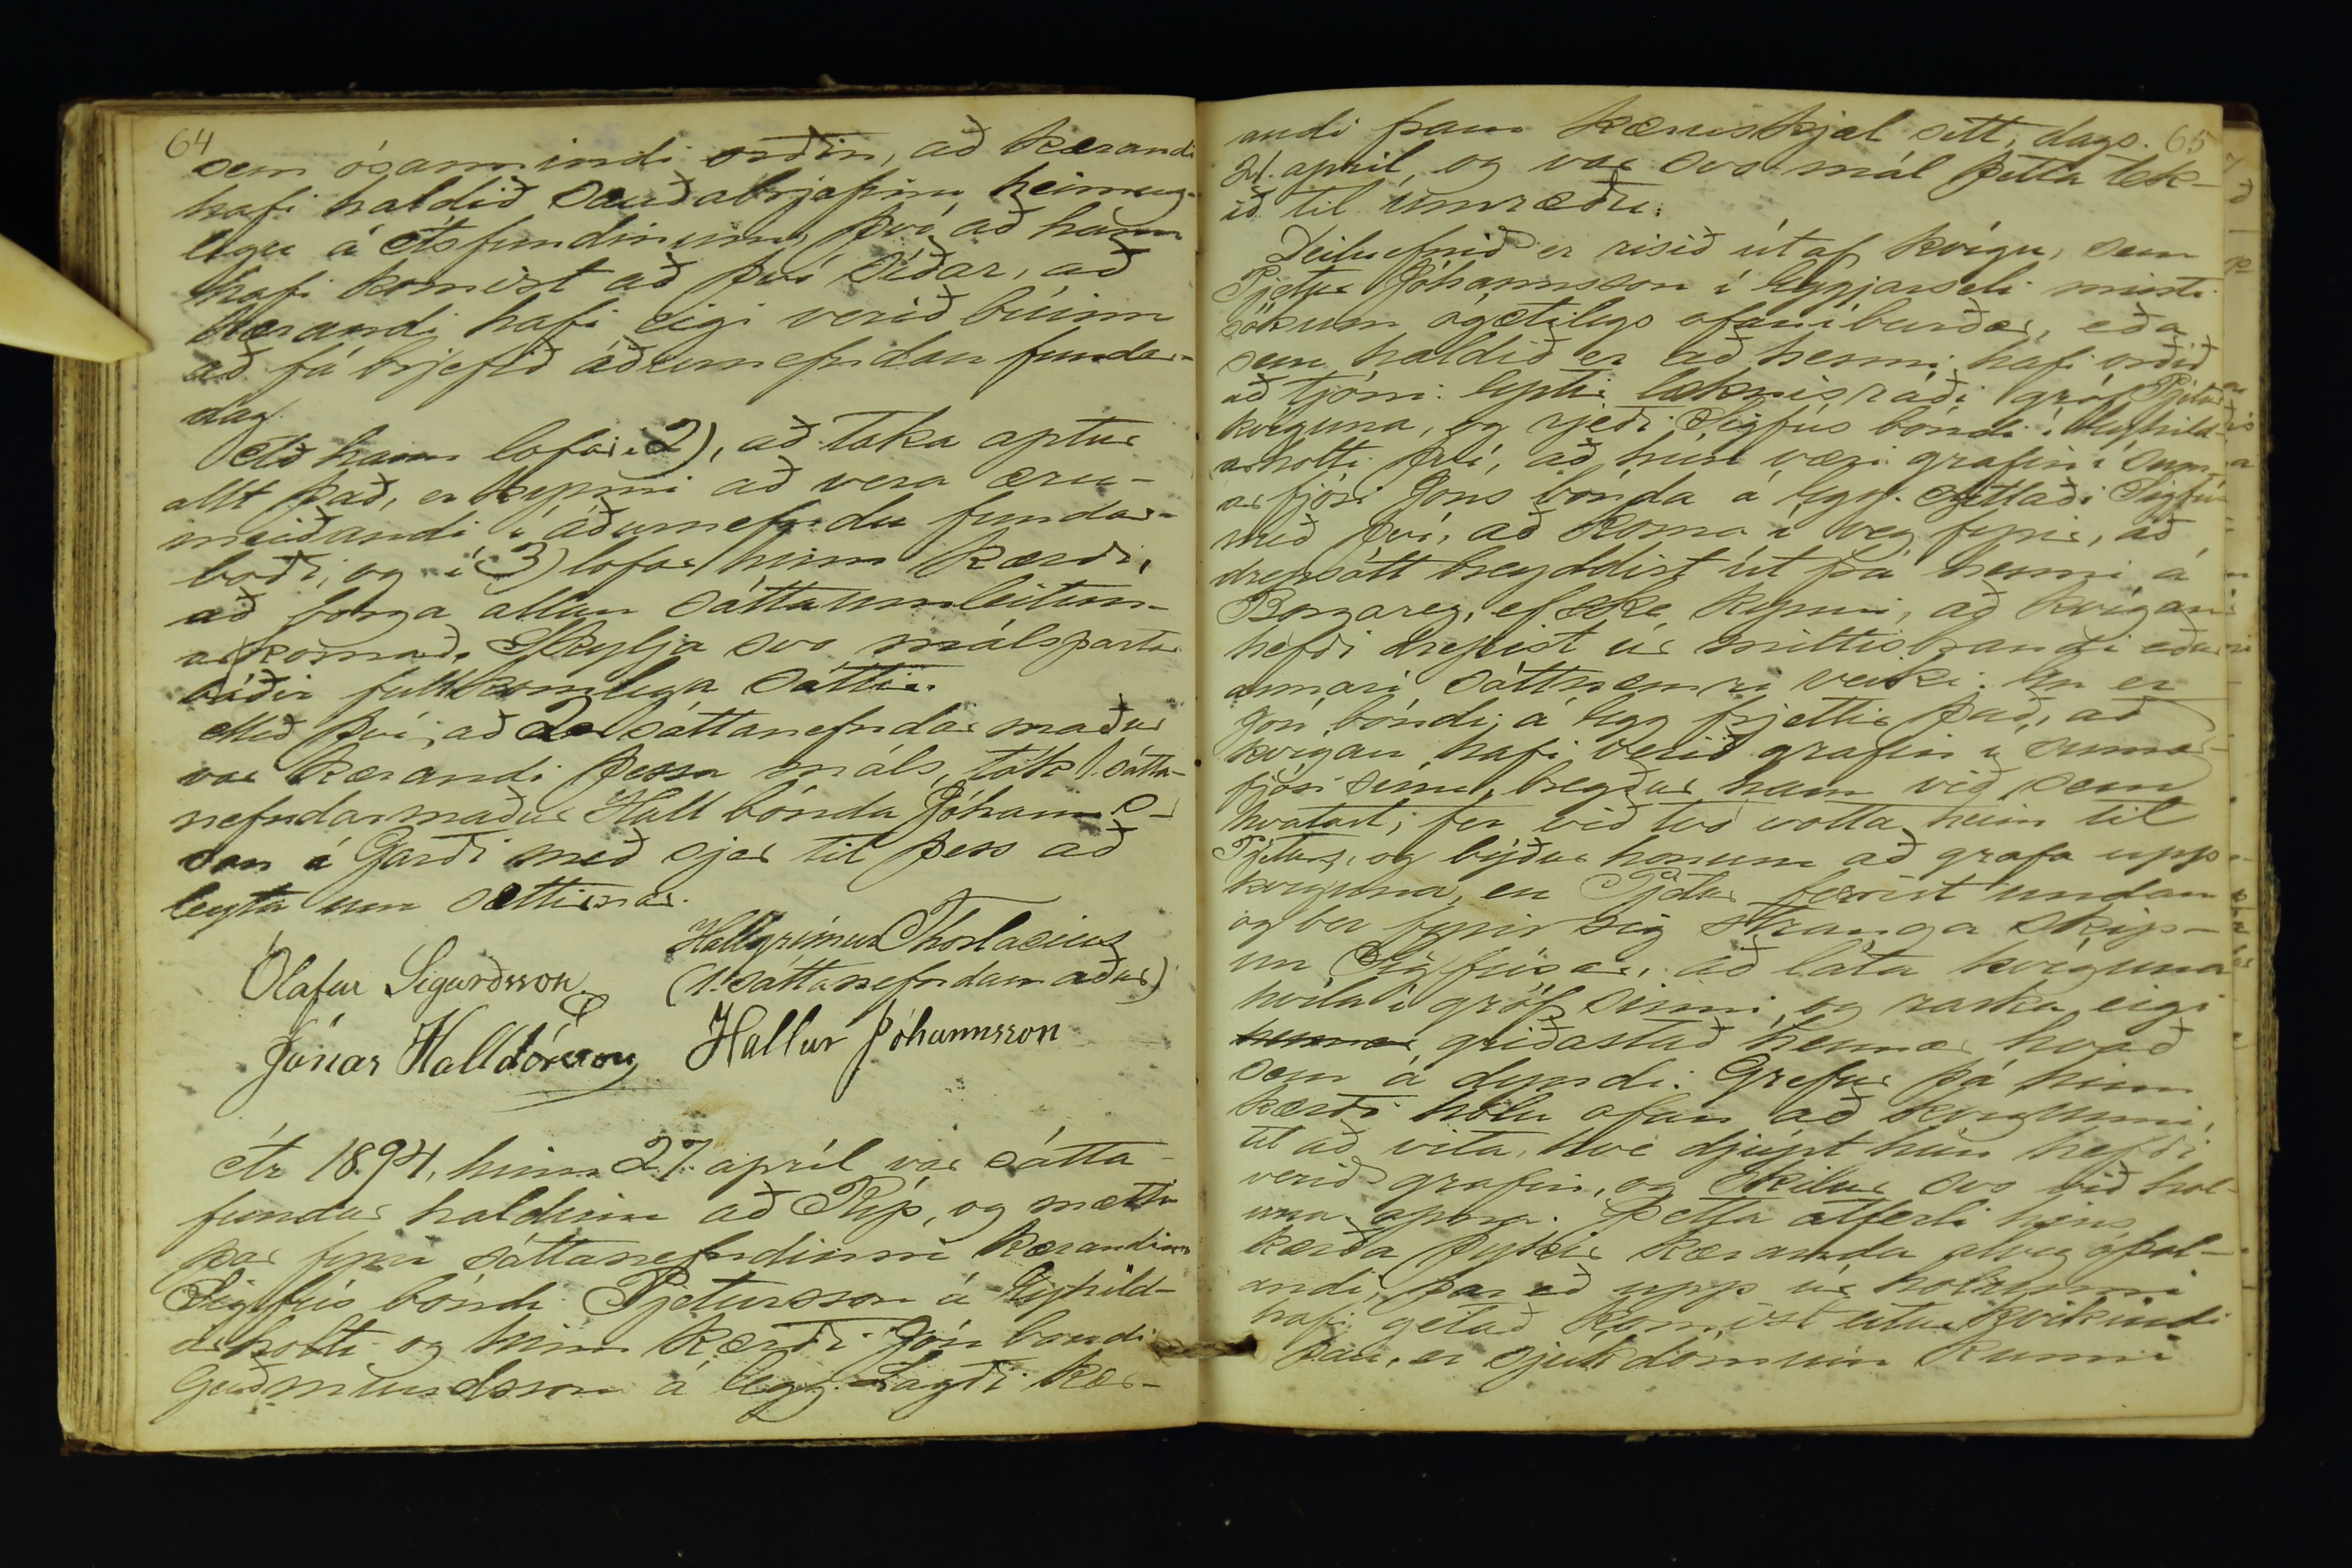 64
sem ósannindi orðin, að kærandi
hafi haldið sendabrjefinu heimug-
legu á fundinum, því að hann
hafi komist að því síðar, að
kærandi hafi eigi verið búinn
að fá brjefið áðurnefndan fundar-
dag.
Að hann lofar 2), að taka aptur
allt það, er kynni að vera æru-
meiðandi í áðurnefndu fundar-
boði, og í 3) lofar hinn kærði,
að borga allan sáttaumleitun-
arkostnað. Skylja svo málspartar
báðir fullkomlega sáttir.
Með því, að 2. sáttanefndar maður
var kærandi þessa máls, tók 1. sátta-
nefndarmaður Hall bónda Jóhanns-
son á Garði með sjer til þess að
leyta um sættirnar.
Hallgrímur Thorlacius
Ólafur Sigurðsson (1. sáttanefndarmaður)
Jónas Halldórsson Hallur Jóhannsson
Ár 1894, hinn 27. apríl var sátta-
fundur haldinn að Ríp, og mætti
þar fyrir sáttanefndinni kærandinn
Sigfús bóndi Pjetursson á Eyhild-
arholti og hinn kærði Jón bóndi
Guðmundsson á Egg. Lagði kær-
65
andi fram kæruskjal sitt, dags.
21. apríl, og var svo mál þetta tek-
ið til umræðu.
Deiluefnið er risið út af kvígu, sem
Pjetur Jóhannsson í Eggjarseli missti
sökum ógætilegs ofaníburðar, eða
sem haldið er að henni hafi orðið
að tjóni. Eptir læknisráði gróf Pjetur
kvíguna, og rjeði Sigfús bóndi í Eyhild-
arholti því, að hún væri grafin í sum-
arfjósi Jóns bónda á Egg. Ætlaði Sigfús
með því, að koma í veg fyrir, að
drepsótt breyddist út frá henni á
Borgarey, ef ske kynni, að kvígan
hefði drepist úr miltisbrandi eður
annari sóttnæmri veiki. En er
Jón bóndi á Egg frjettir það, að
kvígan hafi verið grafin í sumar-
fjósi sínu, bregður hann við sem
hvatast, fer við tvo votta heim til
Pjeturs, og býður honum að grafa upp
kvíguna, en Pjetur færist undan
og ber fyrir sig stranga skip-
un Sigfúsar, að láta kvíguna
hvíla í gröf sinni og raska eigi
hennar griðastað hennar hvað
sem á dyndi. Grefur þá hinn
kærði holu ofan að kvígunni,
til að vita, hve djúpt hún hefði
verið grafin, og skilur svo við hol-
una opna. Þetta atferli hins
kærða þykir kæranda alveg óþol-
andi, þar eð upp úr holunni
hafi getað komist eitur kvikindi
þau, er sjúkdómum kunni